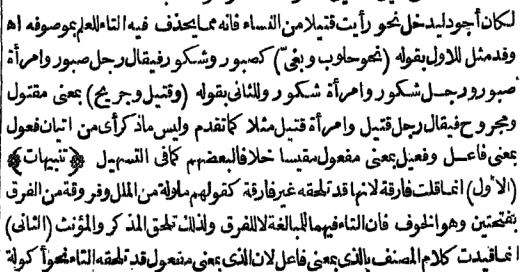 لكان أجود ليدخل نحو رأيت قتيلا من النساء فانه مما يحذف فيه التاء للعلم بموصوفه اه
وقد مثل للاول بقوله (نحو حلوب وبغىّ) كصبور وشكور فيقال رجل صبور وامرأة
صبور ورجل شكور وامرأة شكور وللثانى بقوله (وقتيل وجريح) بمعنى مقتول
ومجروح فيقال رجل قتيل وامرأة قتيل مثلا كما تقدم وليس ماذكر أى من اتيان فعول
بمعنى فاعل وفعيل بمعنى مفعول مقيسا خلافا لبعضهم كما فى التسهيل ﴿تنبيهات﴾
(الاول) انما قلت فارقة لانها قد تلحقه غير فارقة كقولهم ملولة من الملل وفروقة من الفرق
بفتحتين وهو الخوف فان التاء فيهما للمبالغة لا للفرق ولذلك تلحق المذكر والمؤنث (الثانى)
انما قيدت كلام المصنف بالذى بمعنى فاعل لان الذى بمعنى مفعول قد تلحقه التاء نحو أكولة